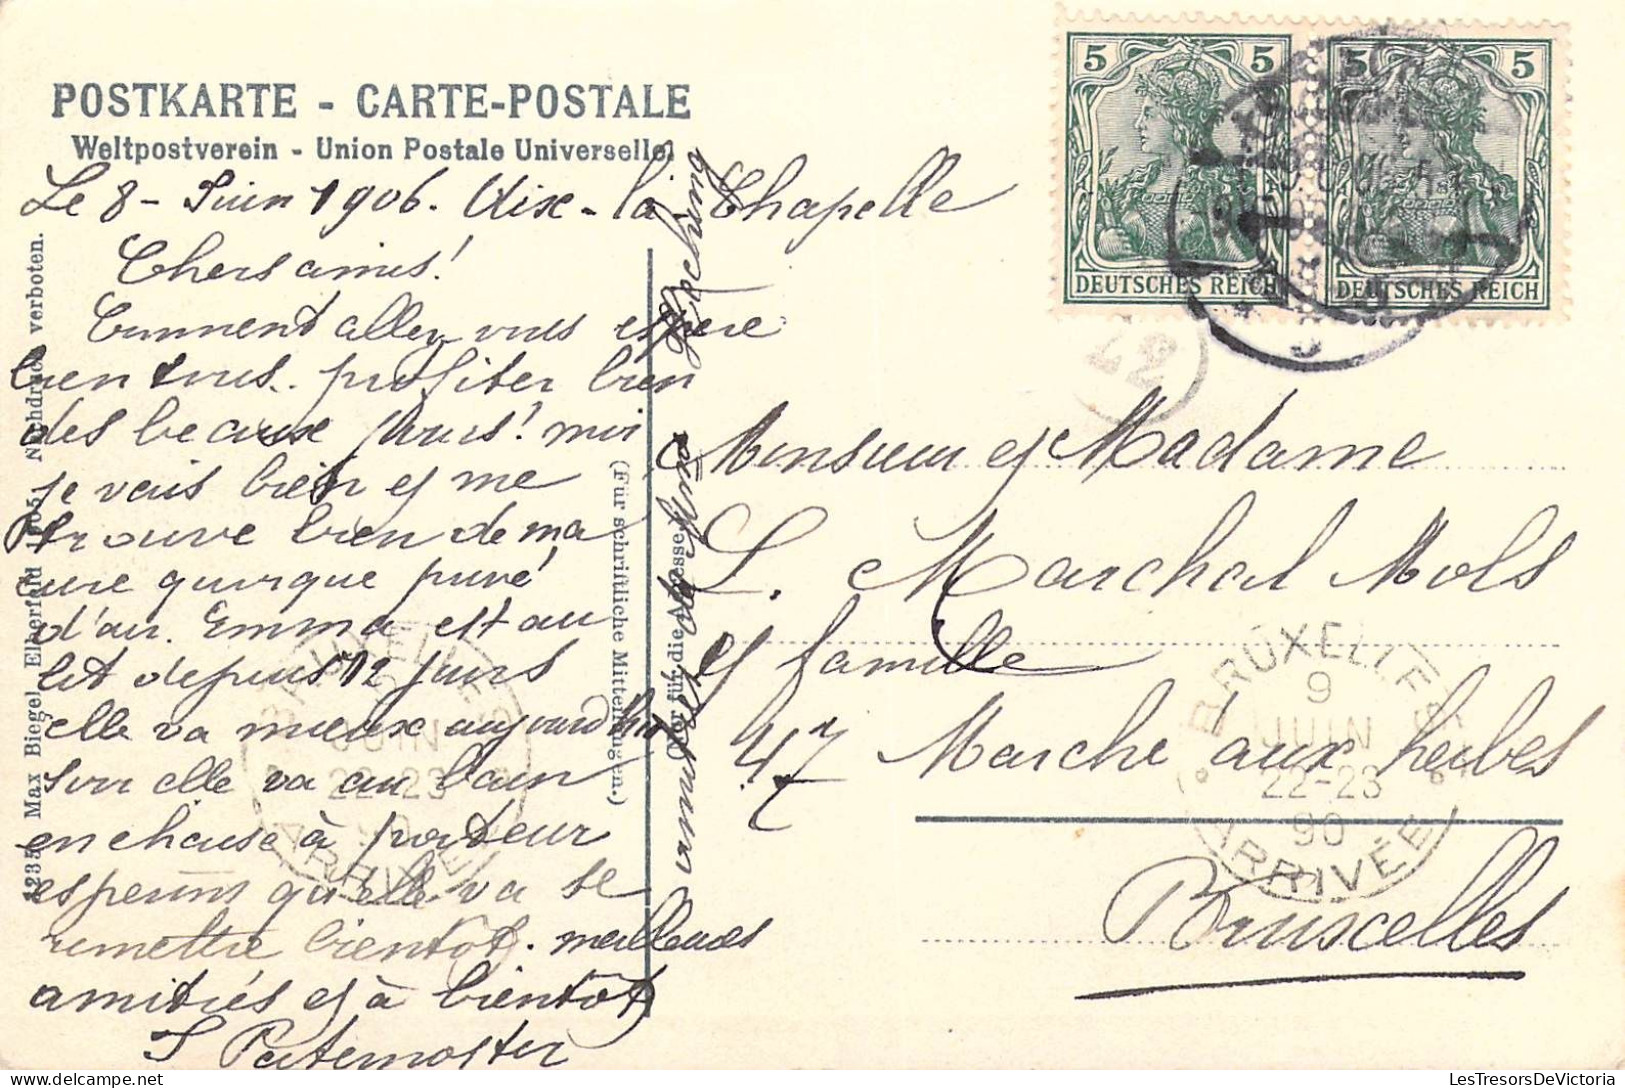 POSTKARTE - CARTE-POSTALE
Weltpostverein - Union Postale Universelle
Le 8 - Juin 1906. Aix-la Chapelle
Chers amis!
Comment allez vous espere
bien tous. profiter bien
des beaux jours! moi
je vais bien et me
trouve bien de ma
cure quoique privé
d'air. Emma est au
lit depuis 12 jours
elle va mieux aujourd'hui
Soir elle va au bain
en chaise à porteur
esperons qu'elle va se
remettre bientot. meilleures
amitiés et à bientot
J Paternoster
amitiés de Anna
1235 Max Biegel Elberfeld 1905. Nachdruck verboten.
(Für schriftliche Mitteilungen.)
(Nur für die Adresse.)
5 5
DEUTSCHES REICH
5 5
DEUTSCHES REICH
Monsieur et Madame
L. Marchal Mols
et famille
47 Marche aux herbes
Bruxelles
BRUXELLES
9
JUIN
22-23
90
ARRIVÉE
BRUXELLES
JUIN
22-23
ARRIVÉE
LesTresorsDeVictoria.com